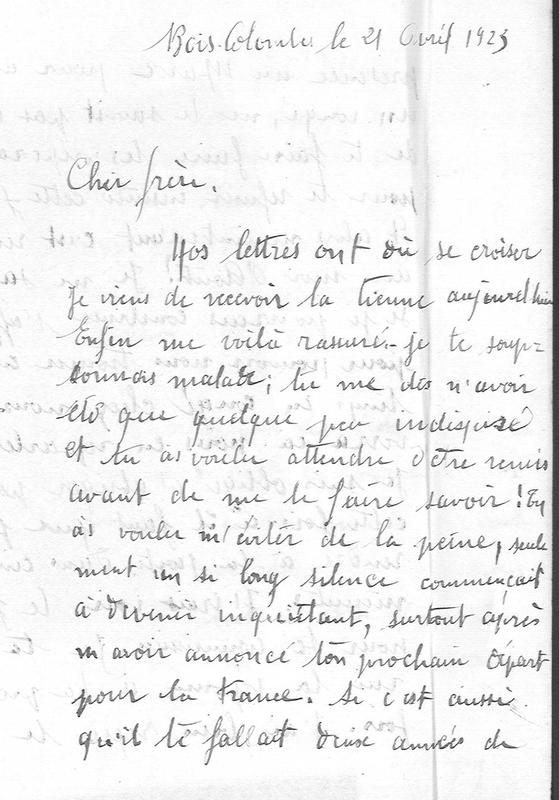 Bois-Colombes le 21 Avril 1923
Cher frère.
Nos lettres ont dû se croiser
Je viens de recevoir la tienne aujourd'hui
Enfin me voilà rassuré. je te soup-
connais malade; tu me dis n'avoir
été que quelque peu indisposé
et tu as voulu attendre d'être remis
avant de me le faire savoir! Tu
as voulu m'éviter de la peine, seule
ment un si long silence commençait
à devenir inquiétant, surtout après
m'avoir annoncé ton prochain départ
pour la France. Si c'est aussi
qu'il te fallait deux années de